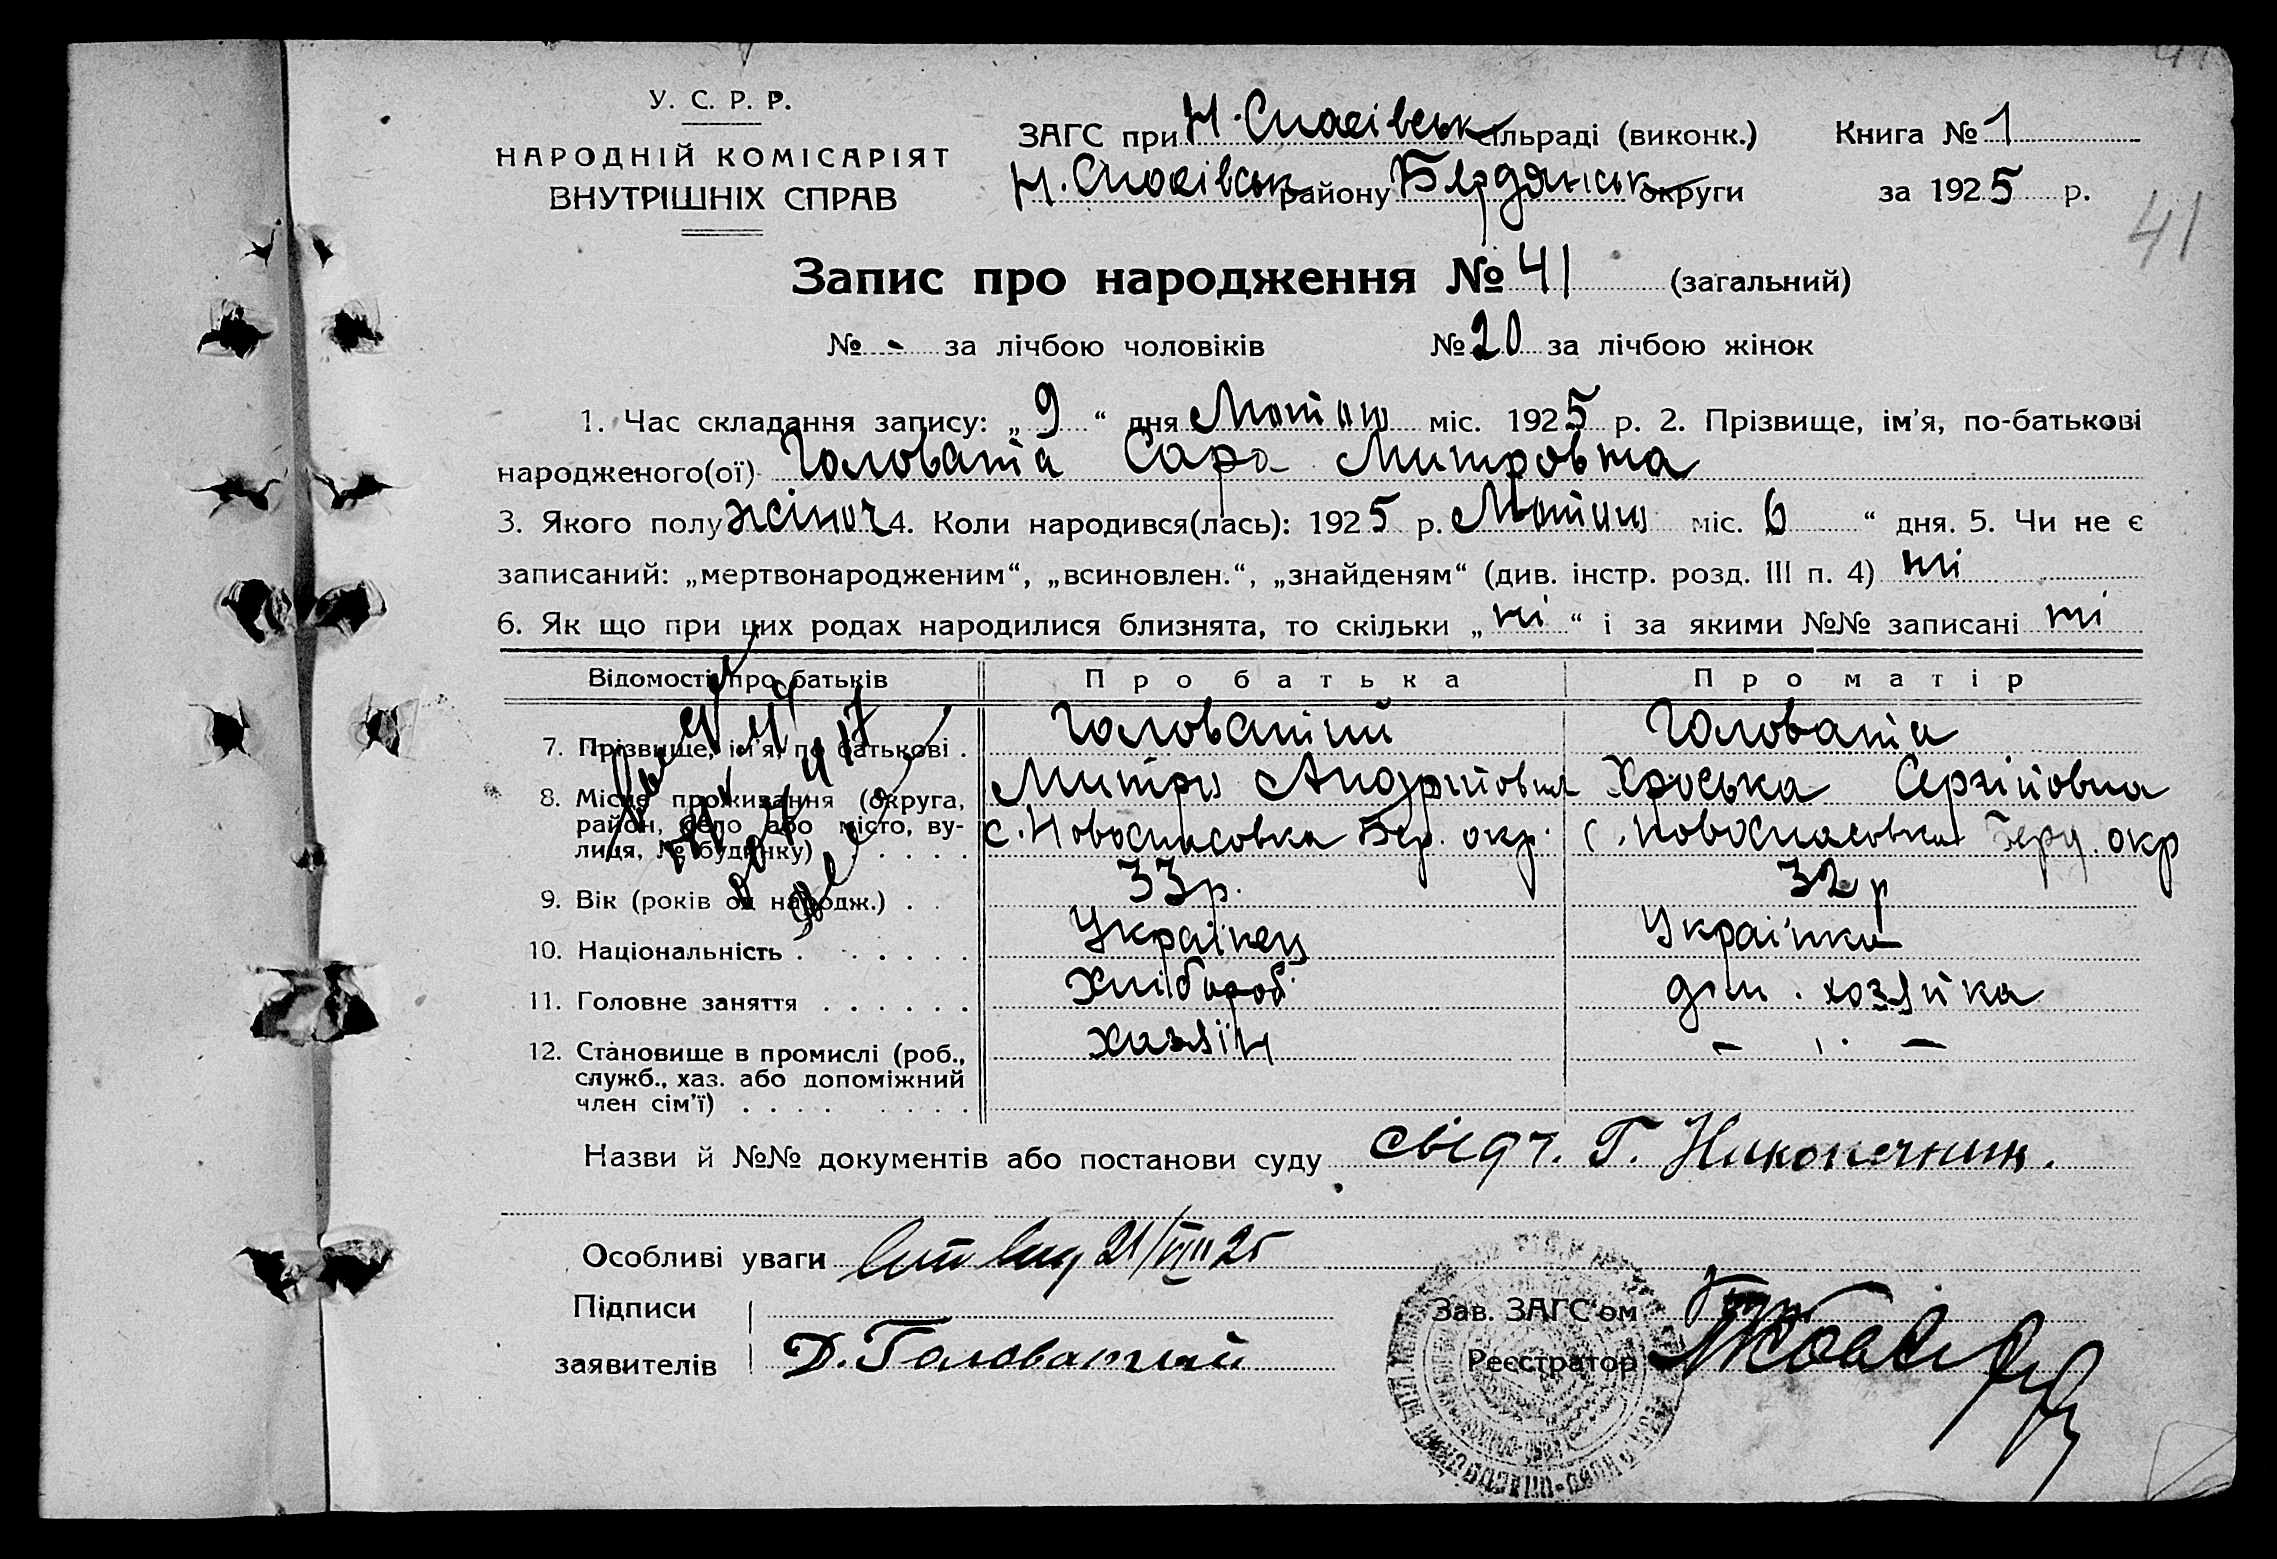 У. С. Р. Р.
НАРОДНІЙ КОМІСАРІЯТ
ВНУТРІШНІХ СПРАВ
ЗАГС при Н. Спасівськ сільраді (виконк.) Книга № 1
Н. Спасівськ району Бердянськ округи за 1925 р.
41
Запис про народження № 41 (загальний)
№ - за лічбою чоловіків № 20 за лічбою жінок
1. Час складання запису: „ 9 “ дня міс. 1925 р. 2. Прізвище, ім'я, по-батькові
народженого(ої) Головата Сара Митровна
3. Якого полу жіноч 4. Коли народився(лась): 1925 р. міс. 6 “ дня. 5. Чи не є
записаний: „мертвонародженим“, „всиновлен.“, „знайденям“ (див. інстр. розд. III п. 4) ні
6. Як що при цих родах народилися близнята, то скільки „ ні “ і за якими №№ записані ні
Відомості про батьків Про батька Про матір
7. Прізвище, ім'я, по батькові . Головатий Головата
Митро Андрійович Хроська Сергійовна
8. Місце проживання (округа,
район, село або місто, ву-
лиця, № будинку) . . . . . с. Новоспасовка Бер. окр. с. Новоспасовка Берд. окр
9. Вік (років од народж.) . . 33 р. 32 р
10. Національність . . . . . . Українец Українка
11. Головне заняття . . . . . . Хлібороб дом. хозяйка
12. Становище в промислі (роб.,
служб., хаз. або допоміжний
член сім'ї) . . . . . . . . хазяїн - -
Назви й №№ документів або постанови суду свідч.
Особливі уваги 21/VIII 25
Підписи
заявителів Д. Головатий
Зав. ЗАГС'ом
Реєстратор